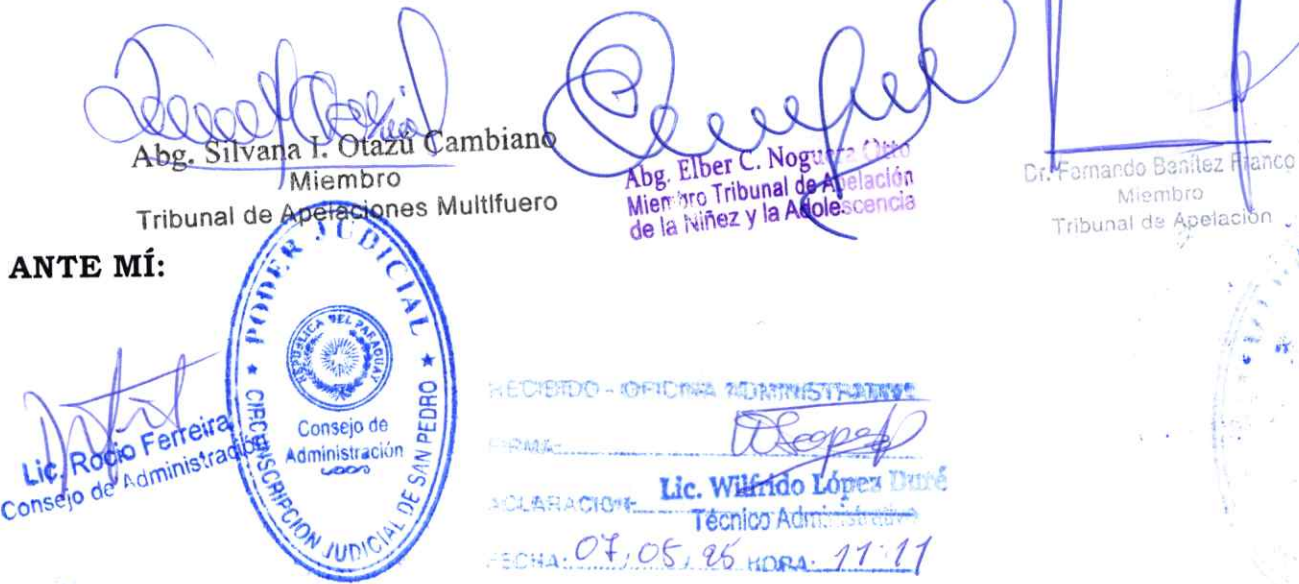 Abg. Silvana I. Otazú Cambiano
Miembro
Tribunal de Apelaciones Multifuero
Abg. Elber C. Noguera Otto
Miembro Tribunal de Apelación
de la Niñez y la Adolescencia
Dr. Fernando Benítez Franco
Miembro
Tribunal de Apelación
ANTE MÍ:
Lic. Rocio Ferreira
Consejo de Administración
PODER JUDICIAL
REPUBLICA DEL PARAGUAY
Consejo de
Administración
CIRCUNSCRIPCION JUDICIAL DE SAN PEDRO
RECIBIDO - OFICINA ADMINISTRATIVA
FIRMA:
ACLARACION: Lic. Wilfrido López Duré
Técnico Administrativo
FECHA: 07, 05, 25 HORA: 11:11